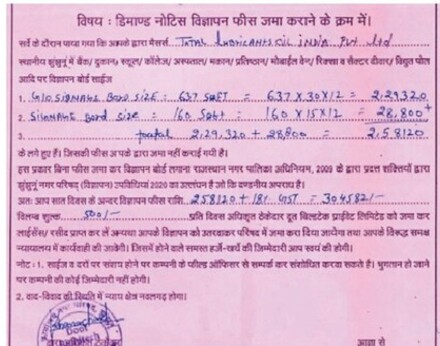 विषय : डिमाण्ड नोटिस विज्ञापन फीस जमा कराने के क्रम में।
सर्वे के दौरान पाया गया कि आपके द्वारा मैसर्स Total Lubricants Oil India Pvt Ltd
स्थानीय झुंझुनूं में बैंक/ दुकान/ स्कूल/ कॉलेज/ अस्पताल/ मकान/ प्रतिष्ठान/ मोबाईल वेन/ रिक्सा व सेक्टर दीवार/ विद्युत पोल
आदि पर विज्ञापन बोर्ड साईज
1. SIGNAGE Bord SIZE : 637 SQFT = 637 X 30 X 12 = 2,29,320
2. SIGNAGE Bord size = 160 Sqft = 160 X 15 X 12 = 28,800
3. 2,29,320 + 28,800 = 2,58,120
के लगे हुए हैं। जिसकी फीस आपके द्वारा जमा नहीं कराई गयी है।
इस प्रकार बिना फीस जमा कर विज्ञापन बोर्ड लगाना राजस्थान नगर पालिका अधिनियम, 2009 के द्वारा प्रदत्त शक्तियों द्वारा
झुंझुनूं नगर परिषद् (विज्ञापन) उपविधियां 2020 का उल्लंघन है जो कि दण्डनीय अपराध है।
अतः आप सात दिवस के अन्दर विज्ञापन फीस राशि 258120 + 18% GST = 304582/-
विलम्ब शुल्क 500/- प्रति दिवस अधिकृत ठेकेदार दूत बिल्डटेक प्राईवेट लिमिटेड को जमा कर
लाईसेंस/ रसीद प्राप्त कर लें अन्यथा आपके विज्ञापन को उतरवाकर परिषद में जमा करा दिया जायेगा तथा आपके विरुद्ध समक्ष
न्यायालय में कार्यवाही की जावेगी। जिसमें होने वाले समस्त हर्जे-खर्चे की जिम्मेदारी आप स्वयं की होगी।
नोट : 1. साईज व दरों पर संशय होने पर कम्पनी के फील्ड ऑफिसर से सम्पर्क कर संशोधित करवा सकते है। भुगतान हो जाने
पर कम्पनी की कोई जिम्मेदारी नहीं होगी।
2. वाद-विवाद की स्थिति में न्याय क्षेत्र नवलगढ़ होगा।
आज्ञा से